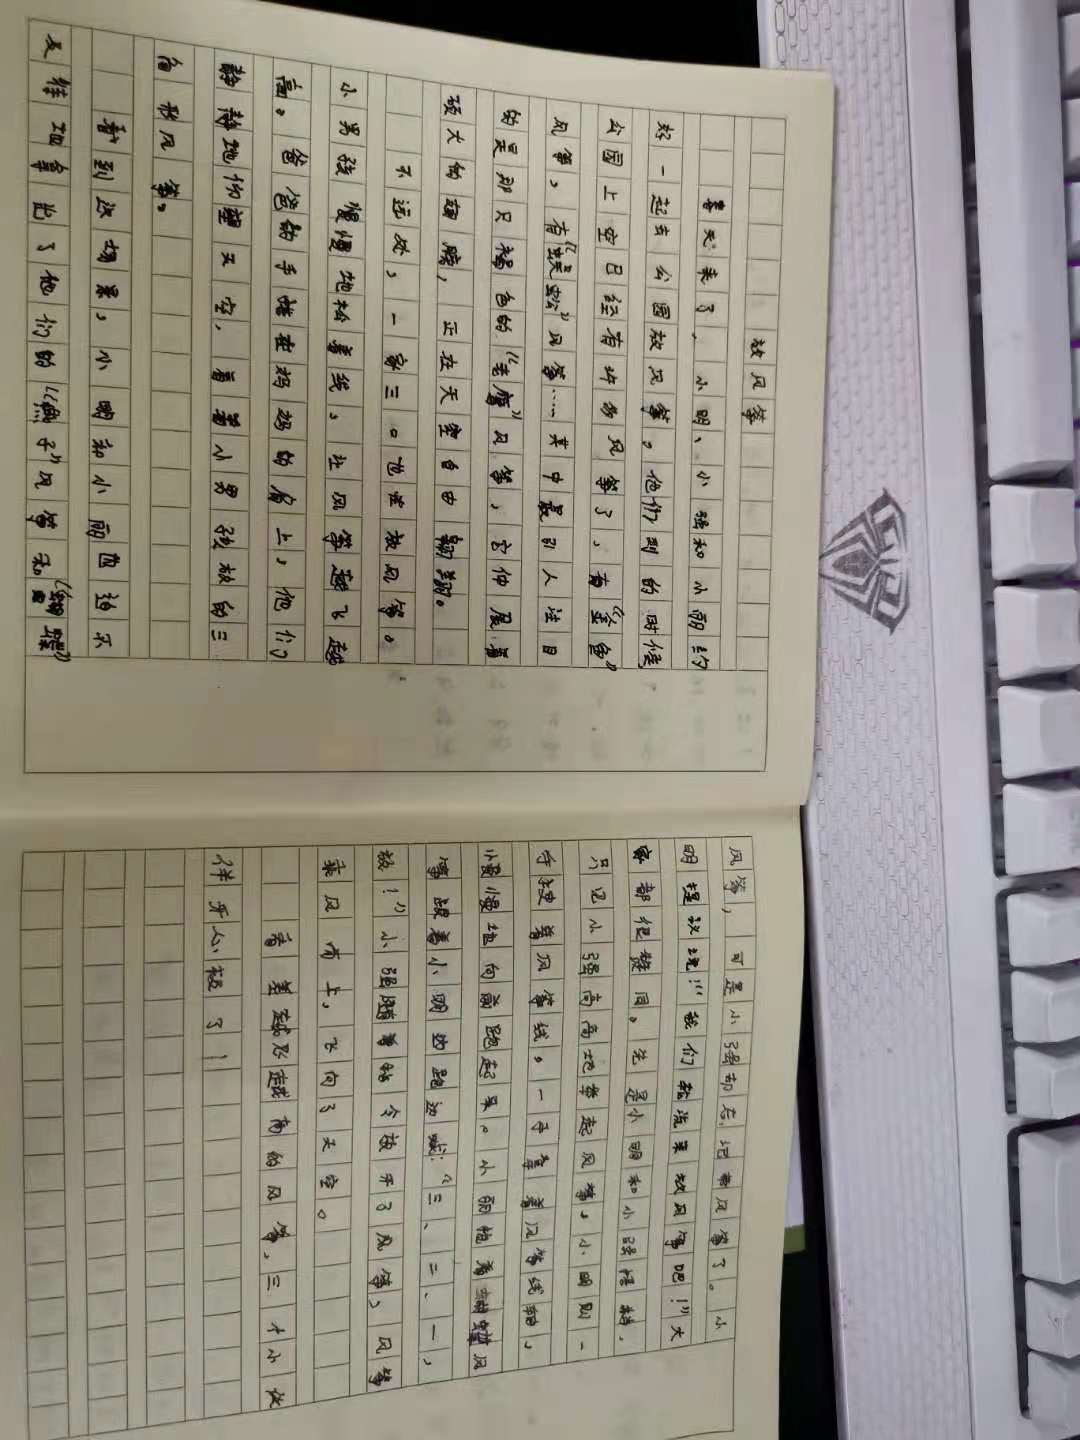 放风筝
春天来了，小明、小强和小丽约
好一起去公园放风筝。他们到的时候
公园上空已经有许多风筝了，有“金鱼”
风筝，有“蜈蚣”风筝……其中最引人注目
的是那只褐色的“老鹰”风筝，它伸展着
硕大的翅膀，正在天空自由翱翔。
不远处，一家三口也在放风筝。
小男孩慢慢地松着线，让风筝越飞越
高。爸爸的手搭在妈妈的肩上，他们
静静地仰望天空，看着小男孩放的三
角形风筝。
看到这场景，小明和小丽迫不
及待地拿出了他们的“燕子”风筝和“蝴蝶”
风筝，可是小强却忘记带风筝了。小
明提议说：“我们轮流来放风筝吧！”大
家都很赞同。先是小明和小强搭档，
只见小强高高地举起风筝，小明则一
手拽着风筝线，一手拿着风筝线轴，
慢慢地向前跑起来。小丽抱着蝴蝶风
筝跟着小明边跑边喊：“三、二、一，
放！”小强随着指令放开了风筝，风筝
乘风而上，飞向了天空。
看着越飞越高的风筝，三个小伙
伴开心极了！